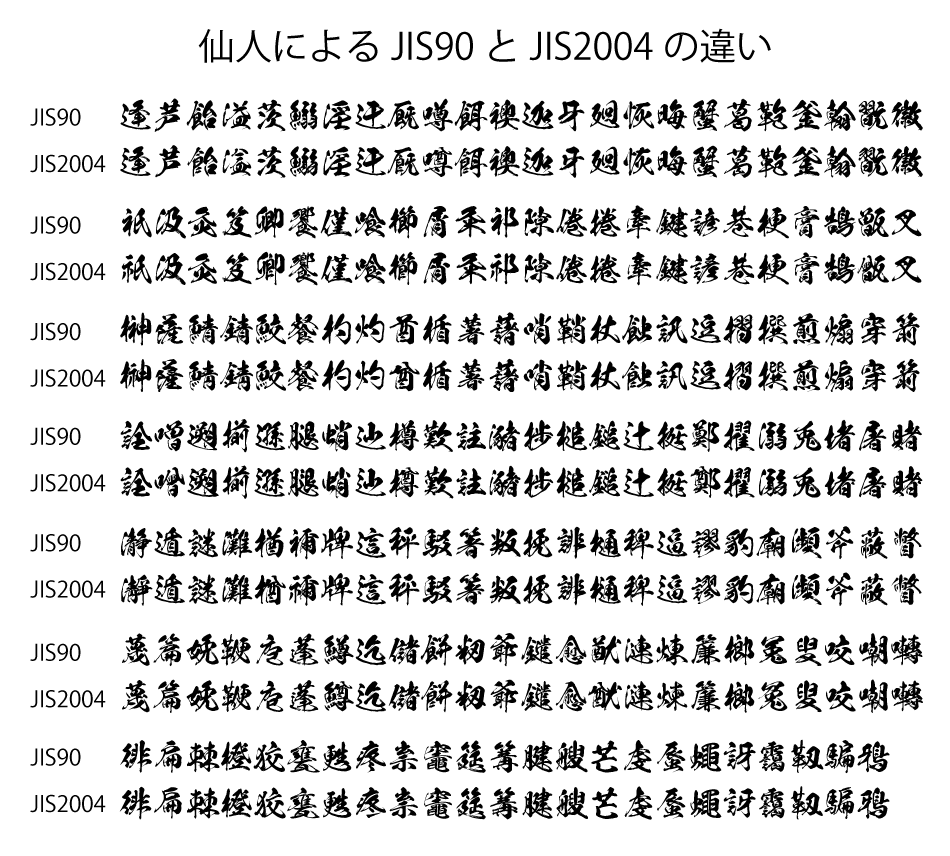 仙人による JIS90 と JIS2004 の違い
JIS90 逢芦飴溢茨鰯淫迂厩噂餌襖迦牙廻恢晦蟹葛鞄釜翰翫徽
JIS2004 逢芦飴溢茨鰯淫迂厩噂餌襖迦牙廻恢晦蟹葛鞄釜翰翫徽
JIS90 祇汲灸笈卿饗僅喰櫛屑粂祁隙倦捲牽鍵諺巷梗膏鵠甑叉
JIS2004 祇汲灸笈卿饗僅喰櫛屑粂祁隙倦捲牽鍵諺巷梗膏鵠甑叉
JIS90 榊薩鯖錆鮫餐杓灼酋楯薯藷哨鞘杖蝕訊逗摺撰煎煽穿箭
JIS2004 榊薩鯖錆鮫餐杓灼酋楯薯藷哨鞘杖蝕訊逗摺撰煎煽穿箭
JIS90 詮噌遡揃遜腿蛸辿樽歎註瀦捗槌鎚辻挺鄭擢溺兎堵屠賭
JIS2004 詮噌遡揃遜腿蛸辿樽歎註瀦捗槌鎚辻挺鄭擢溺兎堵屠賭
JIS90 瀞遁謎灘楢禰牌這秤駁箸叛挽誹樋稗逼謬豹廟瀕斧蔽瞥
JIS2004 瀞遁謎灘楢禰牌這秤駁箸叛挽誹樋稗逼謬豹廟瀕斧蔽瞥
JIS90 蔑篇娩鞭庖蓬鱒迄儲餅籾爺鑓愈猷漣煉簾榔冤叟咬嘲囀
JIS2004 蔑篇娩鞭庖蓬鱒迄儲餅籾爺鑓愈猷漣煉簾榔冤叟咬嘲囀
JIS90 徘扁棘橙狡甕甦疼祟竈筵篝腱艘芒虔蜃蠅訝靄靱騙鴉
JIS2004 徘扁棘橙狡甕甦疼祟竈筵篝腱艘芒虔蜃蠅訝靄靱騙鴉